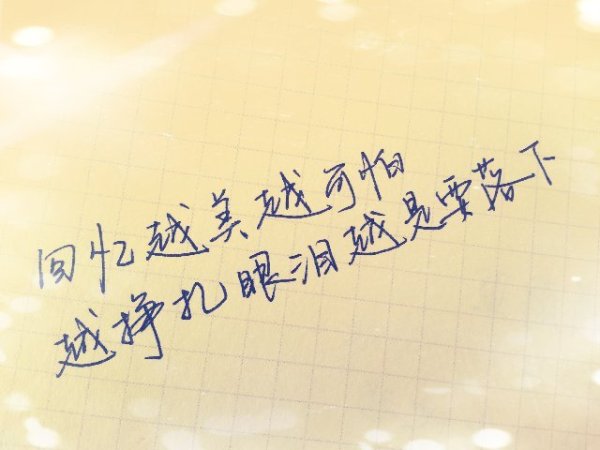 回忆越美越可怕
越挣扎眼泪越是要落下